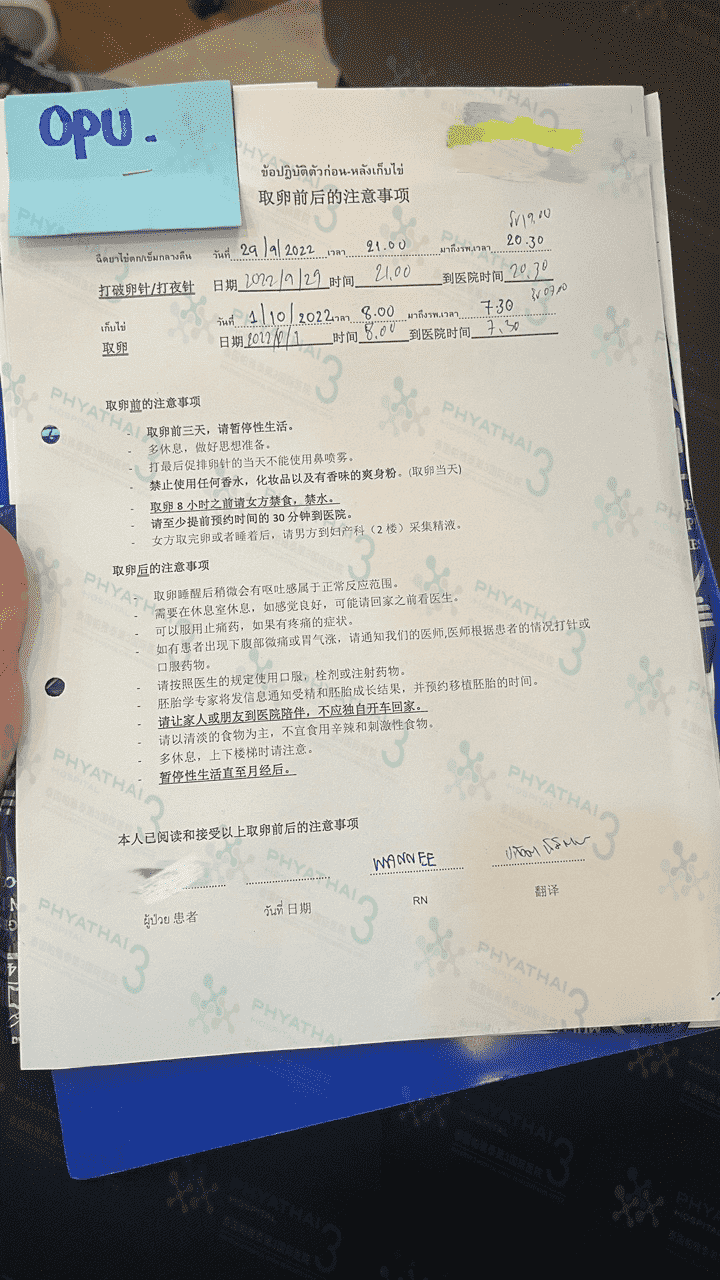 OPU.
ข้อปฏิบัติตัวก่อน-หลังเก็บไข่
取卵前后的注意事项
ฉีดยาไข่ตก/เข็มกลางคืน วันที่ 29/9/2022 เวลา 21.00 มาถึงรพ.เวลา 20.30
打破卵针/打夜针 日期 2022/9/29 时间 21.00 到医院时间 20.30
เก็บไข่ วันที่ 1/10/2022 เวลา 8.00 มาถึงรพ.เวลา 7.30
取卵 日期 时间 8.00 到医院时间 7.30
取卵前的注意事项
- 取卵前三天，请暂停性生活。
- 多休息，做好思想准备。
- 打最后促排卵针的当天不能使用鼻喷雾。
- 禁止使用任何香水，化妆品以及有香味的爽身粉。(取卵当天)
- 取卵 8 小时之前请女方禁食，禁水。
- 请至少提前预约时间的 30 分钟到医院。
- 女方取完卵或者睡着后，请男方到妇产科（2 楼）采集精液。
取卵后的注意事项
- 取卵睡醒后稍微会有呕吐感属于正常反应范围。
- 需要在休息室休息，如感觉良好，可能请回家之前看医生。
- 可以服用止痛药，如果有疼痛的症状。
- 如有患者出现下腹部微痛或胃气涨，请通知我们的医师,医师根据患者的情况打针或
口服药物。
- 请按照医生的规定使用口服，栓剂或注射药物。
- 胚胎学专家将发信息通知受精和胚胎成长结果，并预约移植胚胎的时间。
- 请让家人或朋友到医院陪伴，不应独自开车回家。
- 请以清淡的食物为主，不宜食用辛辣和刺激性食物。
- 多休息，上下楼梯时请注意。
- 暂停性生活直至月经后。
本人已阅读和接受以上取卵前后的注意事项
WANNEE
ผู้ป่วย 患者 วันที่ 日期 RN 翻译
PHYATHAI 3
HOSPITAL